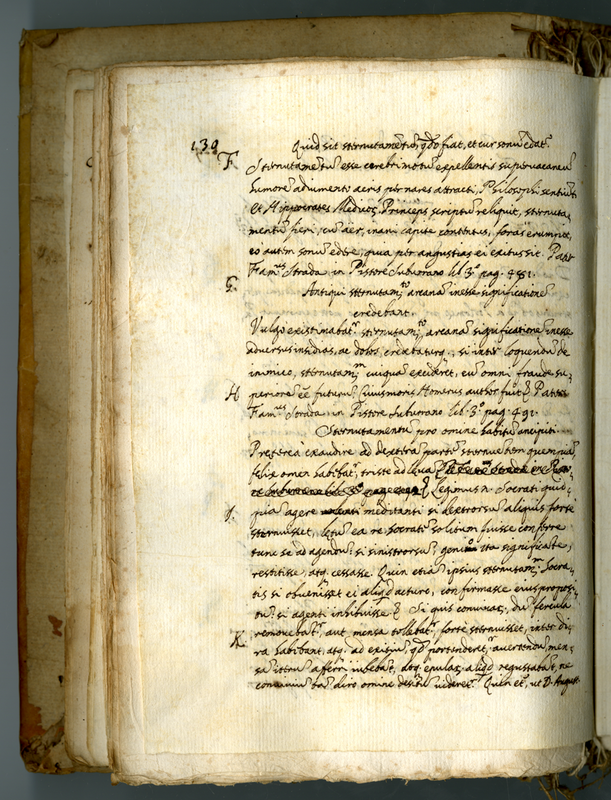 139
Quid sit sternutametu, qdo fiat, et cur sonu edat.
F
Sternutametu esse cerebri motu expellentis supervacaneu
humore adiumenti aeris per nares attracti, Philosophi sentiut
Et Hippocrates Medicos Princeps scriptu reliquit, sternuta,
mentu fieri, cu aer, inani capite contentus, foras erumpit,
eo autem sonu edere, quia per angustias ei exitus sit. Pater
Fam.us Strada in Pistore Suburrano lib. 3.º pag. 491.
G
Antiqui sternutam.to arcana inesse significatione
credebant.
Vulgo existimabat sternutam.to arcana significatione inesse
adversus insidias, ac dolos, credebaturq., si inter loquendu de
inimico, sternutam. cuiqua excideret, eu omni fraude su,
H
periore ee futuru. Ciuusmoris Homerus author fuit & Pater
Fam.us Strada in Pistore Suburrano lib. 3.º pag. 491.
Sternutamentu pro omine habitu ancipiti.
Preterea exaudire ad dextera parte sternuetem quempia,
felix omen habebat, triste ad leva
& Legimus n. Socrati quid,
I.
pia agere meditanti si dextrorsu aliquis forte
sternuisset, letu ea re Socrate solitum fuisse conferre
tunc se ad agendu; si sinistrorsu, geniu ita significate,
restitisse, atq. cessasse. Quin etia ipsius sternutam. Socra,
tis si obvenisset ei aliqd acturo, confirmasse eius proposi
tu, si agenti inhibuisse & Si quis convivar., du fercula
K
removebat, aut mensa tollebat, forte sternuisset, inter di
ra habebant, atq. ad exitiu, qd portenderet, avertendu men,
sa iteru afferri iubebat, atq. epulas aliqd regustabat, ne
conviviu tra diro omine desitu videret. Quin et, ut D. August.